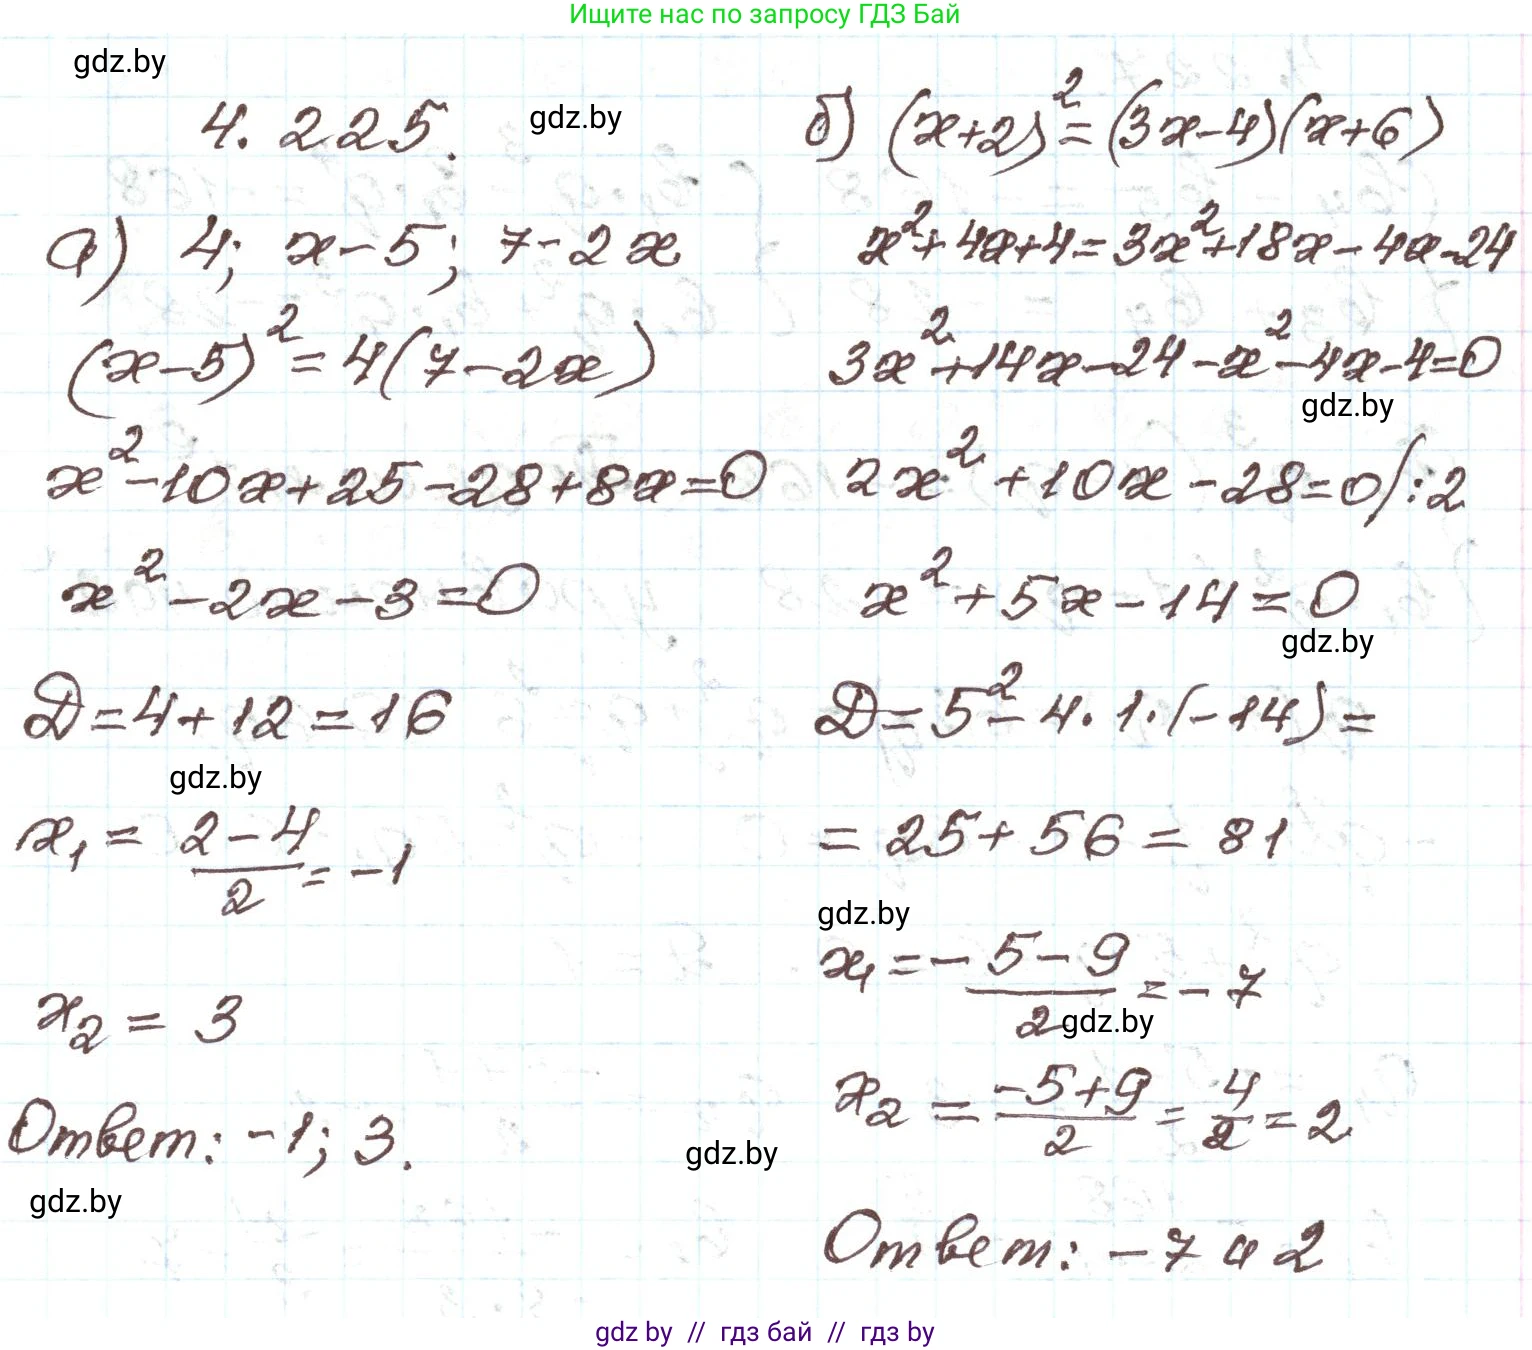 Ищите нас по запросу ГДЗ Бай
gdz.by
4.225.
gdz.by
а) 4; x-5; 7-2x
(x-5)²=4(7-2x)
x²-10x+25-28+8x=0
x²-2x-3=0
D=4+12=16
gdz.by
x₁ = (2-4)/2 = -1
x₂ = 3
Ответ: -1; 3.
gdz.by
gdz.by
б) (x+2)²=(3x-4)(x+6)
x²+4x+4=3x²+18x-4x-24
3x²+14x-24-x²-4x-4=0
gdz.by
2x²+10x-28=0/:2
x²+5x-14=0
gdz.by
D=5²-4·1·(-14)=
=25+56=81
gdz.by
x₁ = (-5-9)/2 = -7
gdz.by
x₂ = (-5+9)/2 = 4/2 = 2
Ответ: -7 и 2
gdz by // гдз бай // гдз by